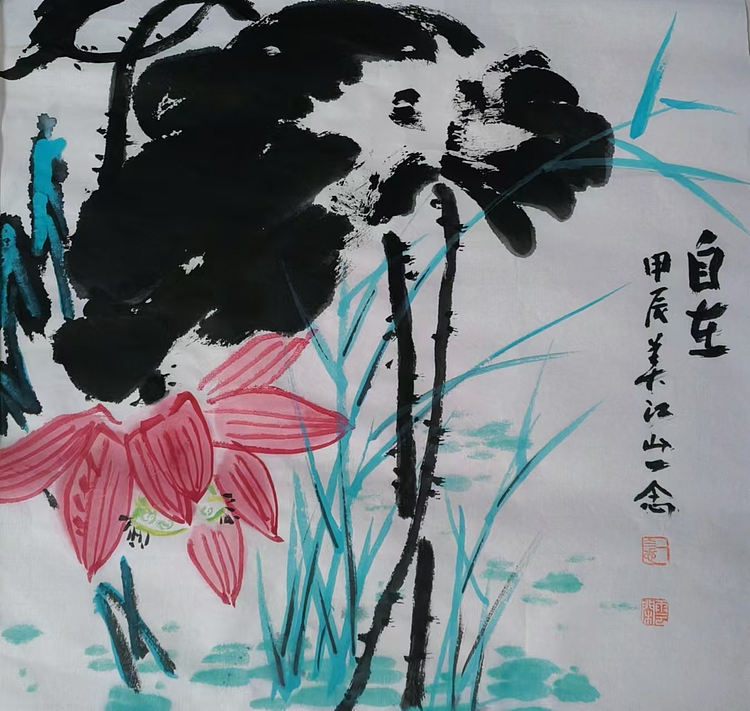 自在
甲辰美江山一念